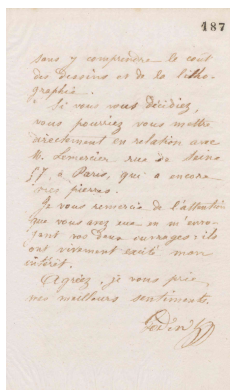 187
sans y comprendre le coût
des dessins et de la litho-
graphie.
Si vous vous décidiez,
vous pourriez vous mettre
directement en relation avec
M. Lemercier rue de Seine
57, à Paris, qui a encore
mes pierres.
Je vous remercie de l'attention
que vous avez eue en m'envo-
yant vos deux ouvrages; ils
ont vivement excité mon
intérêt.
Agréez, je vous prie,
mes meilleurs sentiments.
Godin